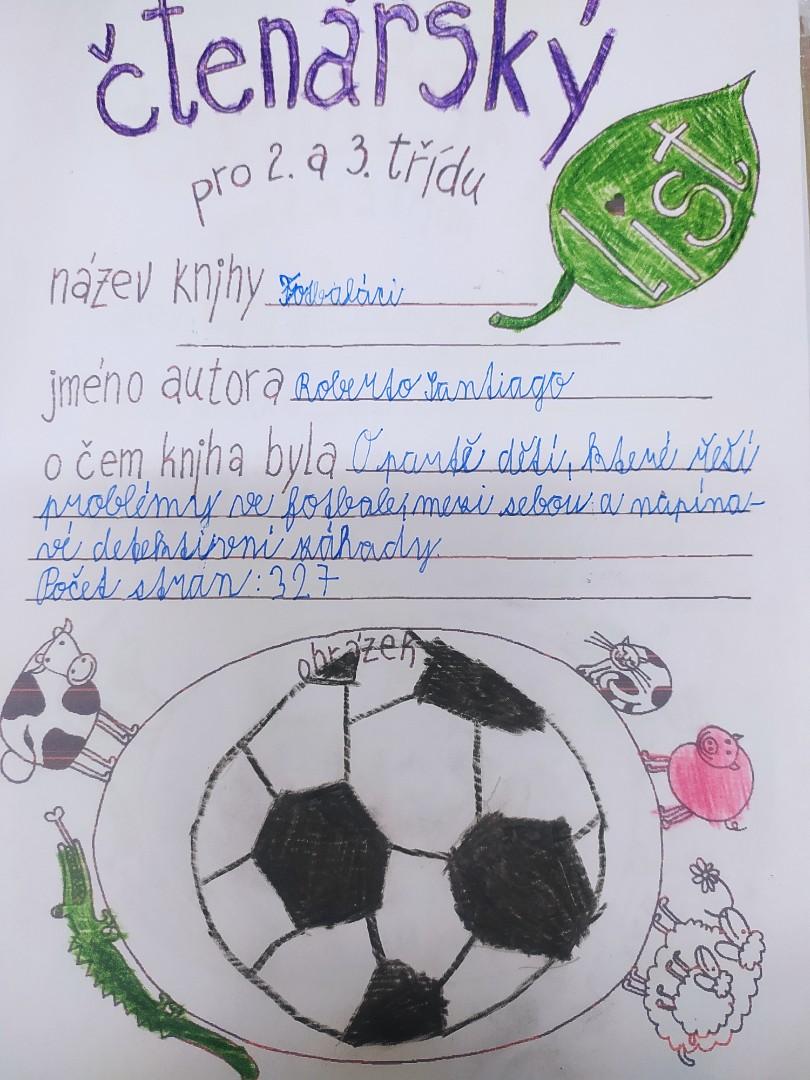 čtenářský
list
pro 2. a 3. třídu
název knihy Fotbaláci
jméno autora Roberto Santiago
o čem kniha byla O partě dětí, které řeší
problémy ve fotbale, mezi sebou a napína-
vé detektivní záhady.
Počet stran: 327
obrázek